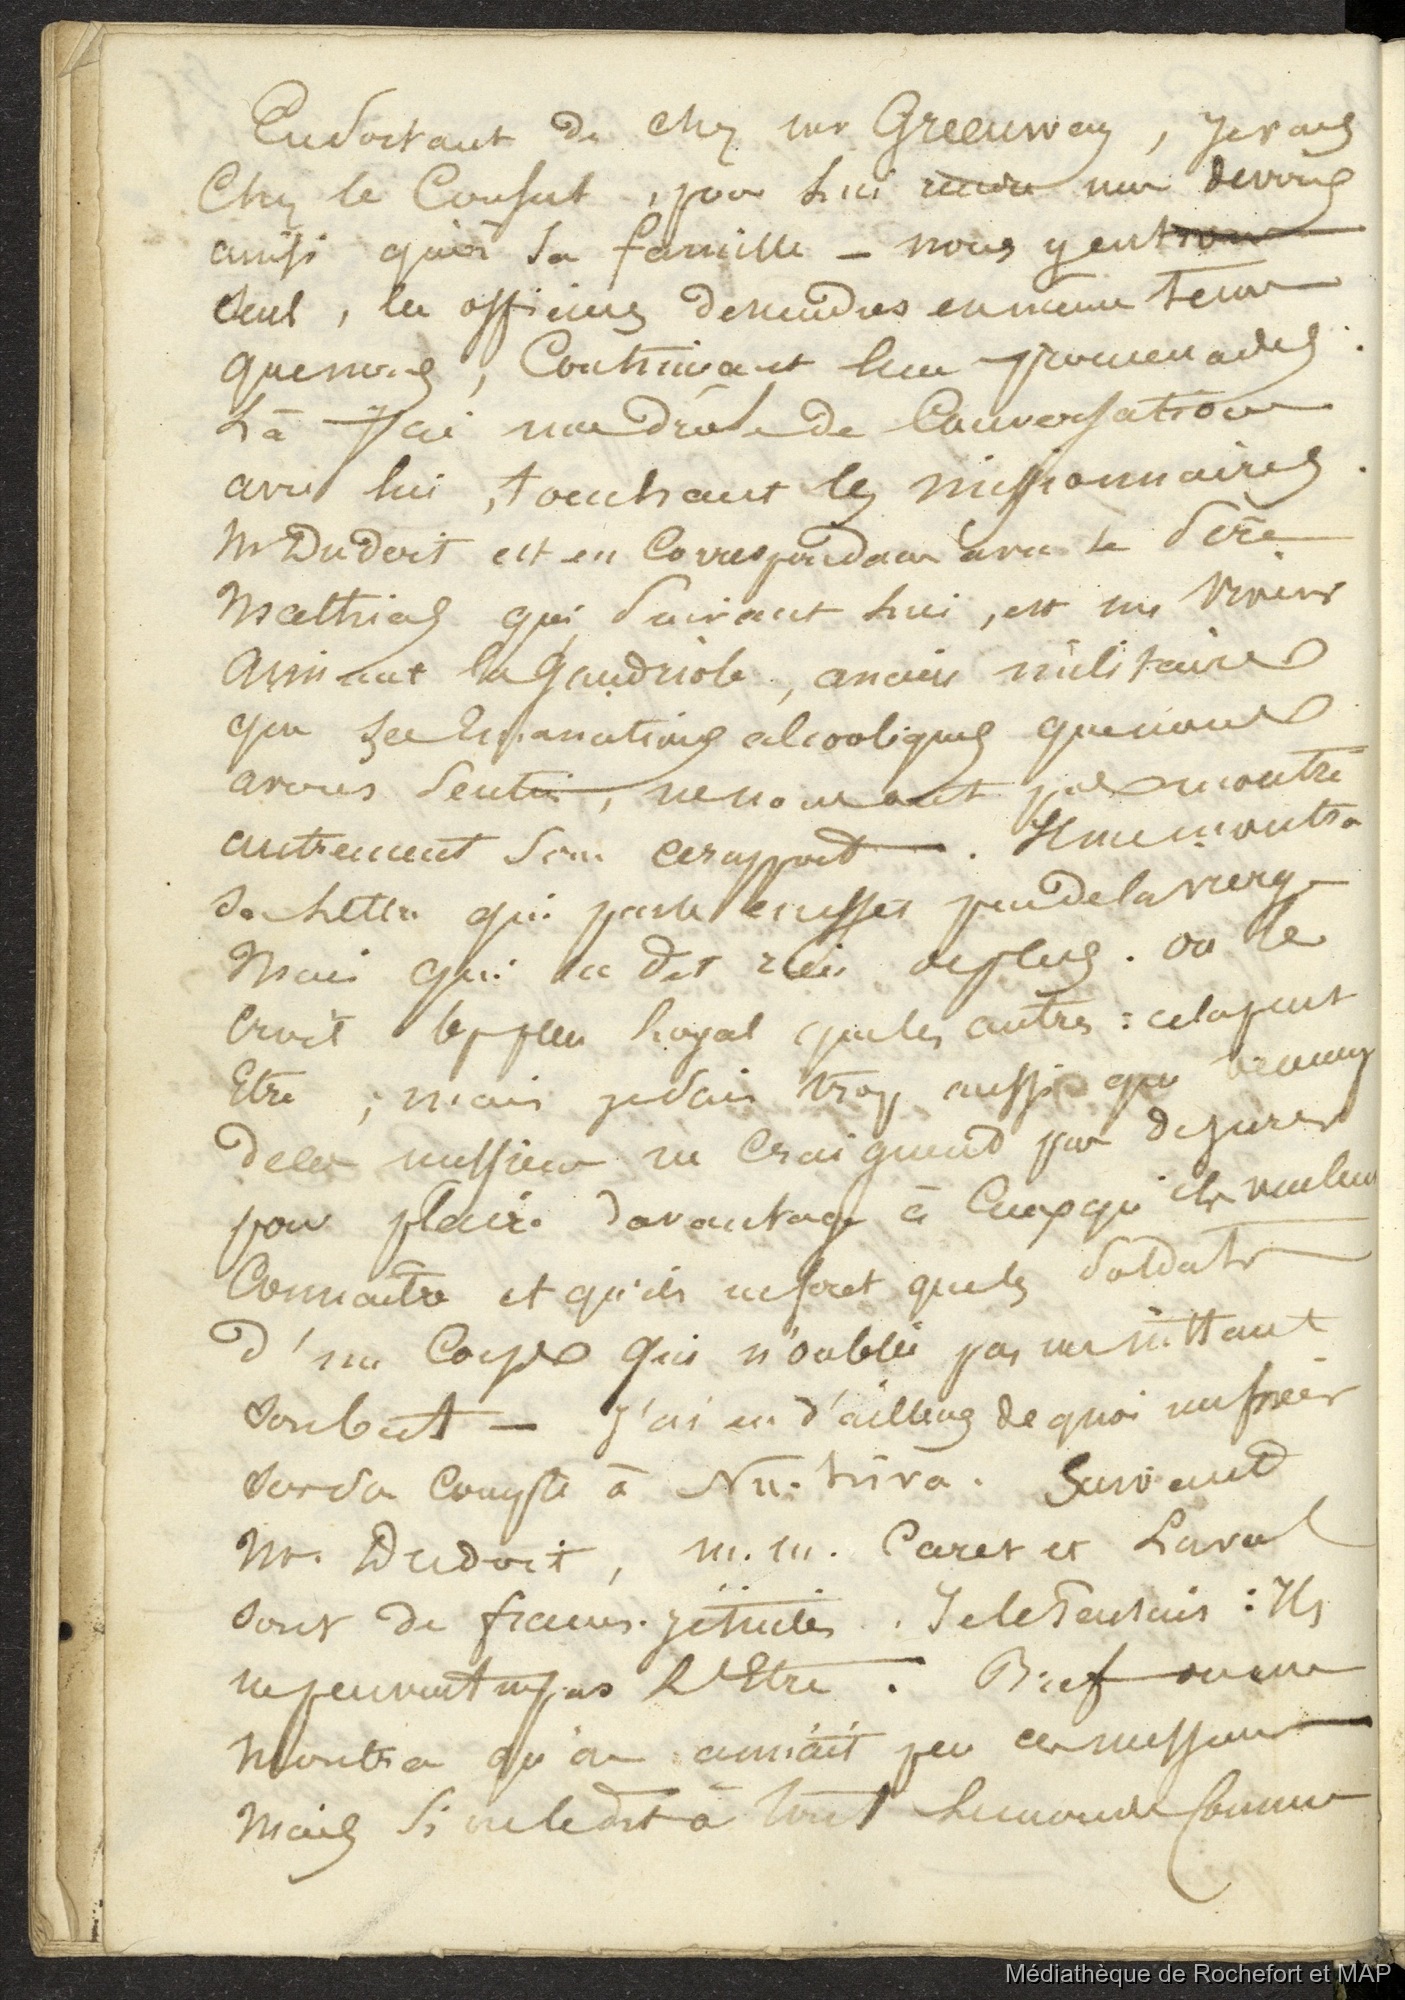 En Sortant de chez mr Greenway, je vais
Chez le Consul, pour lui rendre mes devoirs
ainsi qu'à Sa famille _ nous y entrons
Seul, les officiers descendus en même tems
que nous, Continuant leur promenades.
Là j'ai une drôle de Conversation
avec lui, touchant les missionnaires.
Mr Dudoit est en Correspondance avec le Père
Mathias qui Suivant lui, est un vivant
aimant la Gaudriole, ancien militaire
que Ses Emanations alcooliques que nous
avons Senti, ne nous ont pas montré
autrement Sous ce rapport. Il me montra
Sa Lettre qui parle assez peu de la vierge
Mais qui ne dit rien de plus. on le
croit le plus loyal que les autres : cela peut
Etre ; mais je Sais trop aussi que
de ces messieurs ne craignent pas de jurer
pour plaire davantage à Ceux qu'ils veulent
Connaître et qu'ils ne sont que les Soldats
d'un Corps qui n'oublie pas un instant
Son but _ j'ai eu d'ailleurs de quoi me fixer
Sur Sa Compte à Nu-hiva. Suivant
Mr. Dudoit, m.m. Caret et Laval
Sont de francs jésuites. Je le Pensais : Ils
ne peuvent pas L'Etre. Bref on me
Montra qu'on aimait peu ces messieurs
Mais Si on le dit à tout le monde Comme
Médiathèque de Rochefort et MAP